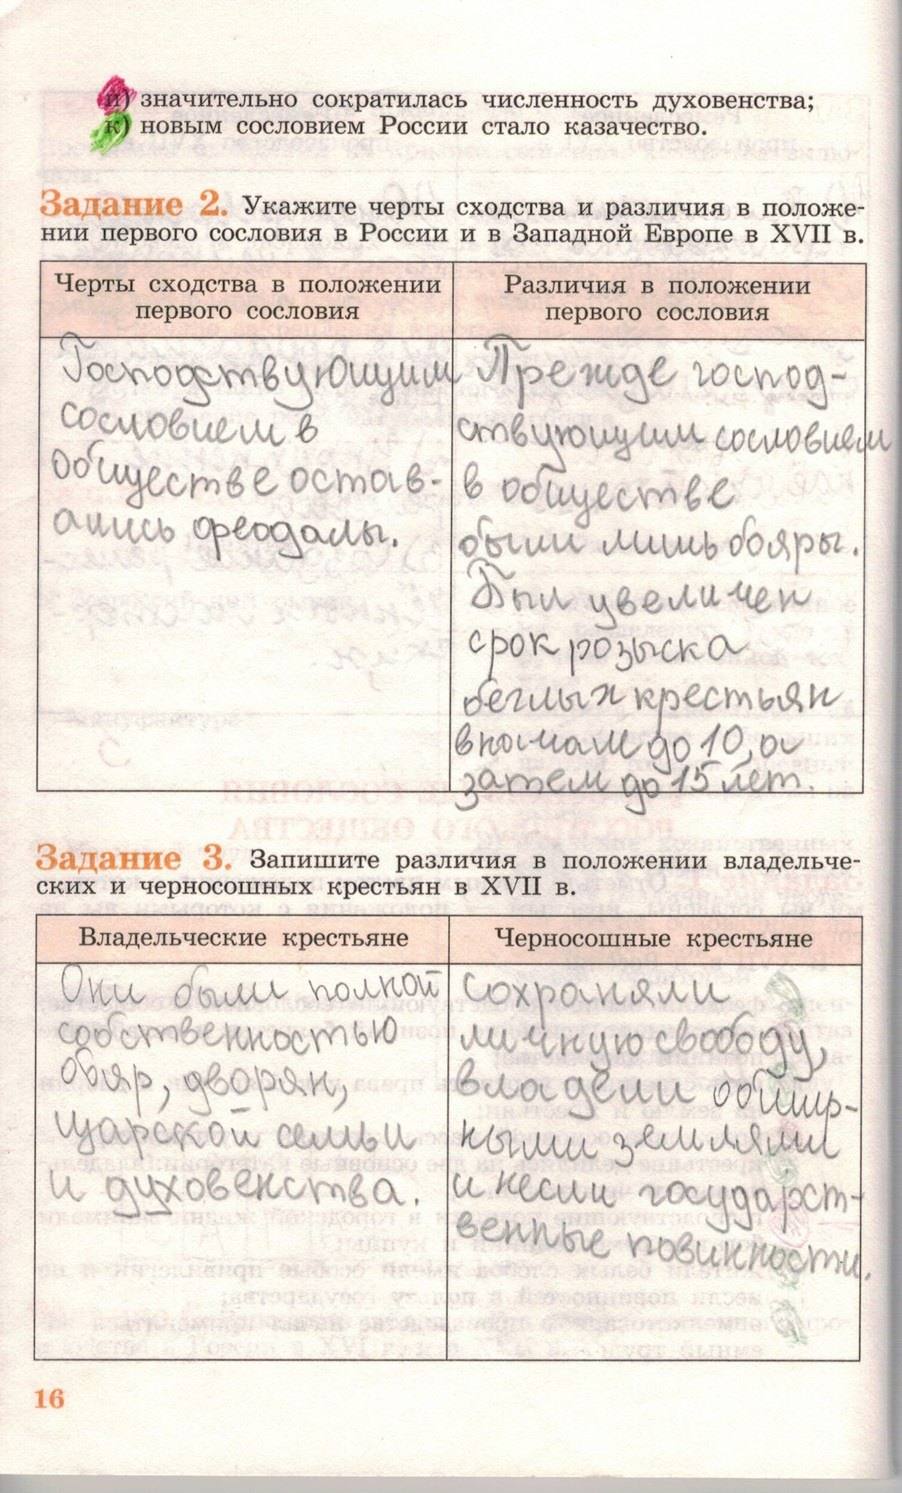 и) значительно сократилась численность духовенства;
к) новым сословием России стало казачество.
Задание 2. Укажите черты сходства и различия в положе-
нии первого сословия в России и в Западной Европе в XVII в.
Черты сходства в положении
первого сословия
Господствующим
сословием в
обществе остав-
ались феодалы.
Различия в положении
первого сословия
Прежде господ-
ствующим сословием
в обществе
были лишь бояры.
Был увеличен
срок розыска
беглых крестьян
вначале до 10, а
затем до 15 лет.
Задание 3. Запишите различия в положении владельче-
ских и черносошных крестьян в XVII в.
Владельческие крестьяне
Они были полной
собственностью
бояр, дворян,
царской семьи
и духовенства.
Черносошные крестьяне
Сохраняли
личную свободу,
владели обшир-
ными землями
и несли государст-
венные повинности.
16